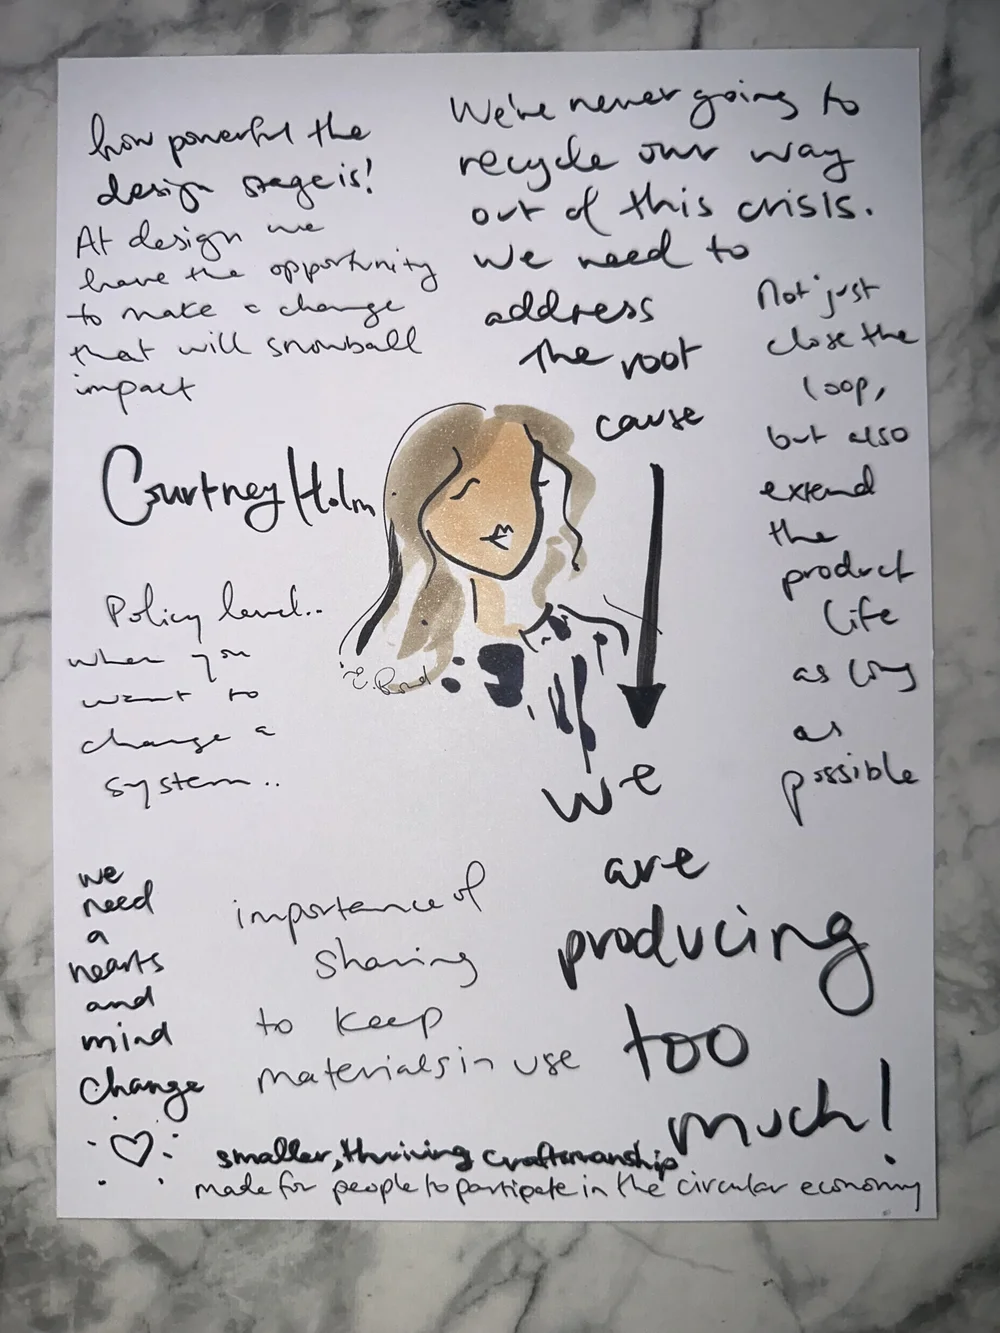 how powerful the
design stage is!
At design we
have the opportunity
to make a change
that will snowball
impact
We're never going to
recycle our way
out of this crisis.
We need to
address
the root
cause
Not just
close the
loop,
but also
extend
the
product
life
as long
as
possible
Courtney Holm
Policy level..
when you
want to
change a
system..
we
are
producing
too
much!
we
need
a
hearts
and
mind
change
importance of
sharing
to keep
materials in use
smaller, thriving craftsmanship
made for people to participate in the circular economy